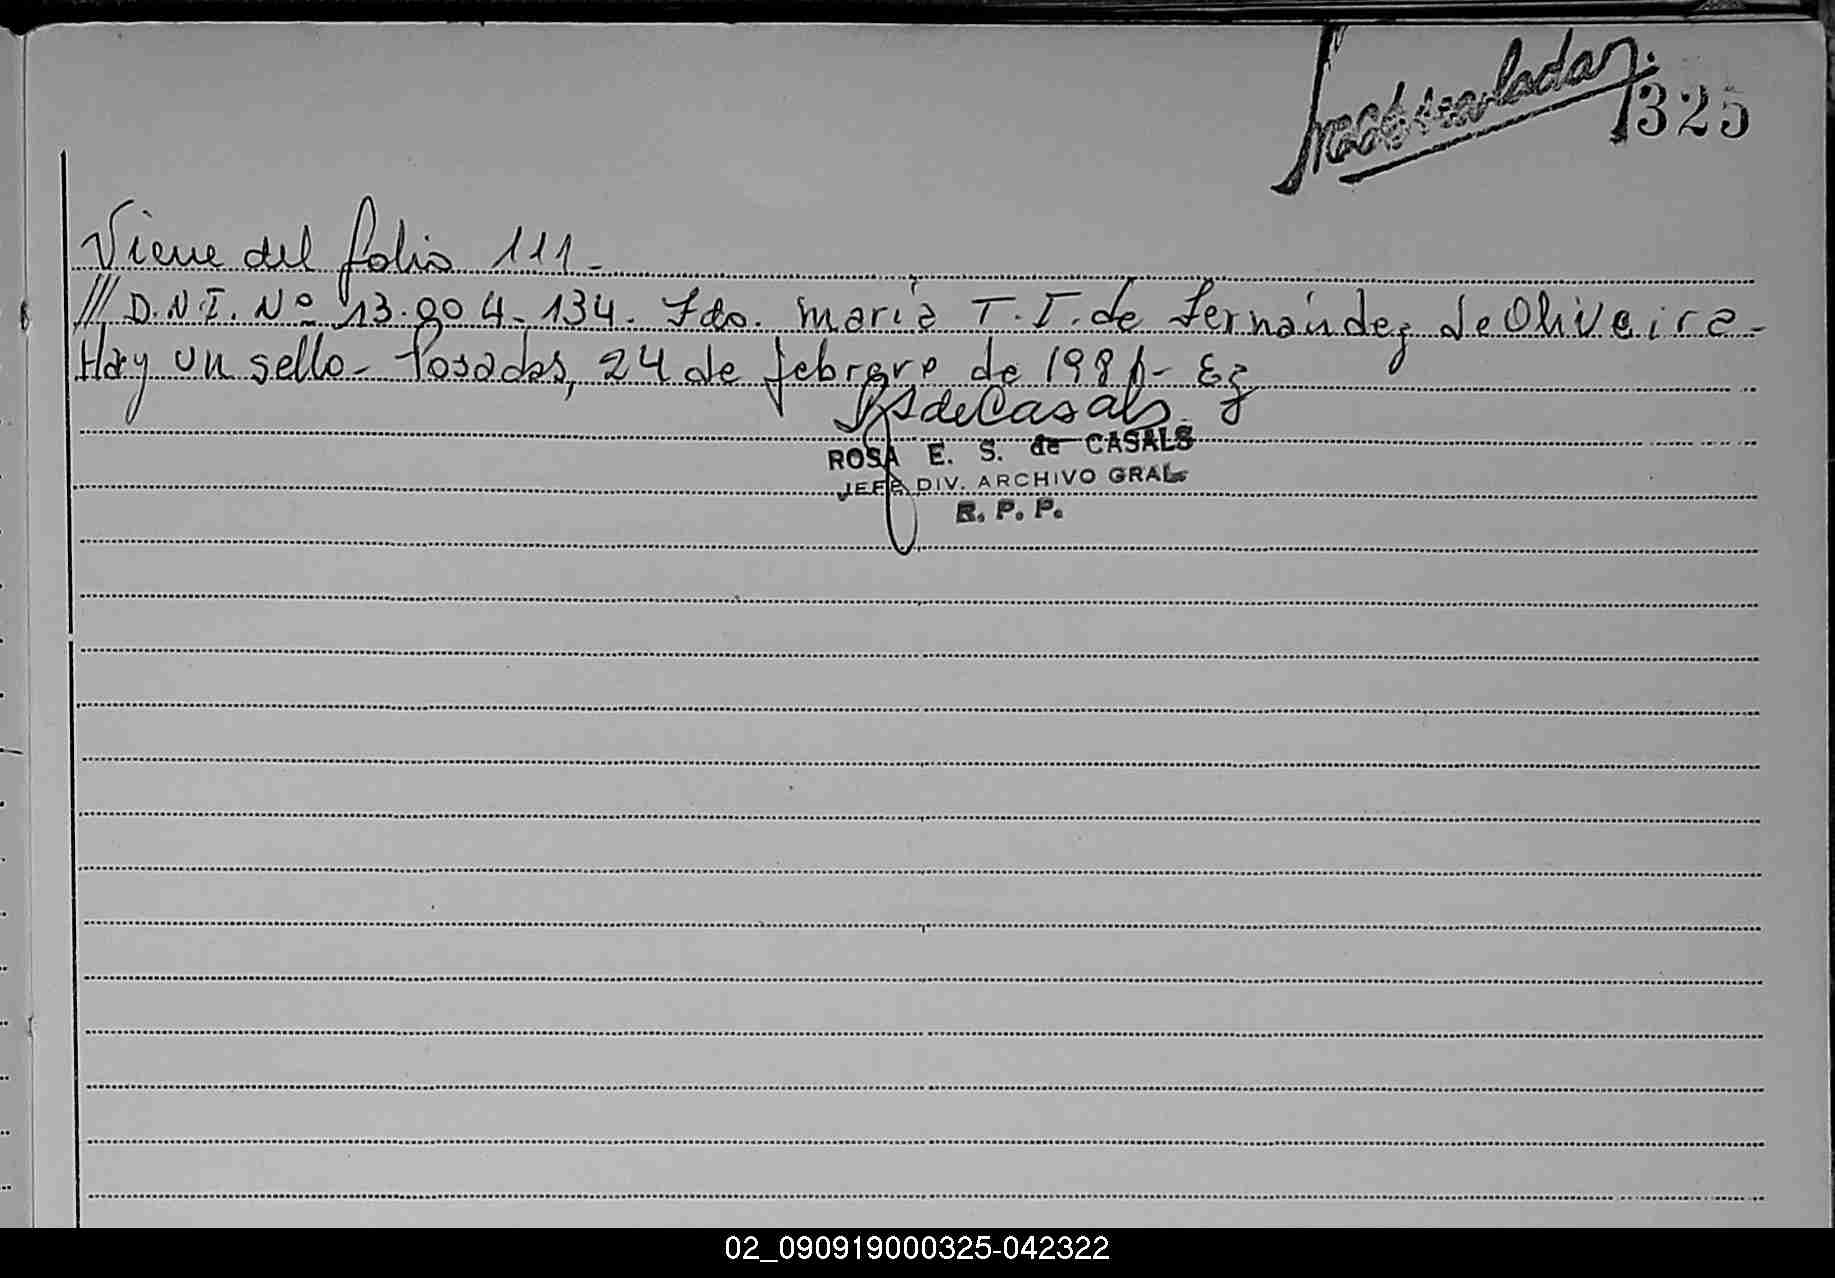 325
Viene del folio 111-
/// D.N.I. Nº 13.004-134. Fdo. María T. I. de Fernández de Oliveira-
Hay un sello- Posadas, 24 de febrero de 1981- Ez
ROSA E. S. de CASALS
JEFE DIV. ARCHIVO GRAL
R. P. P.
02_090919000325-042322